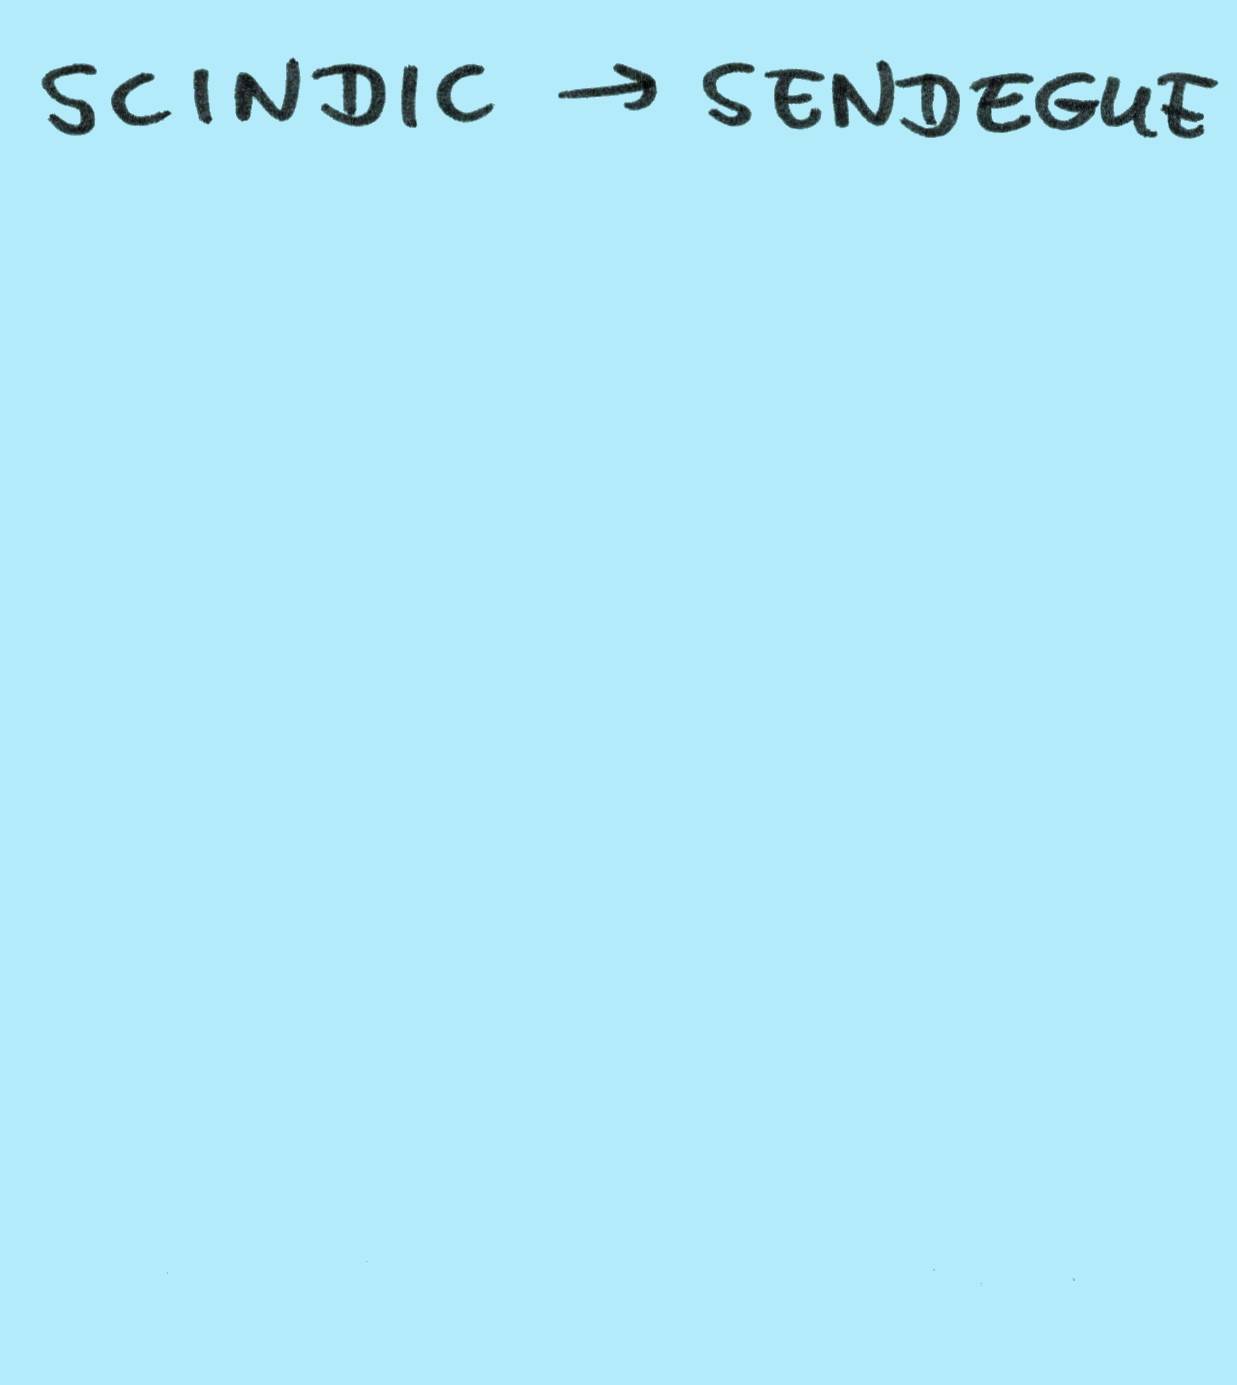 SCINDIC → SENDEGUE